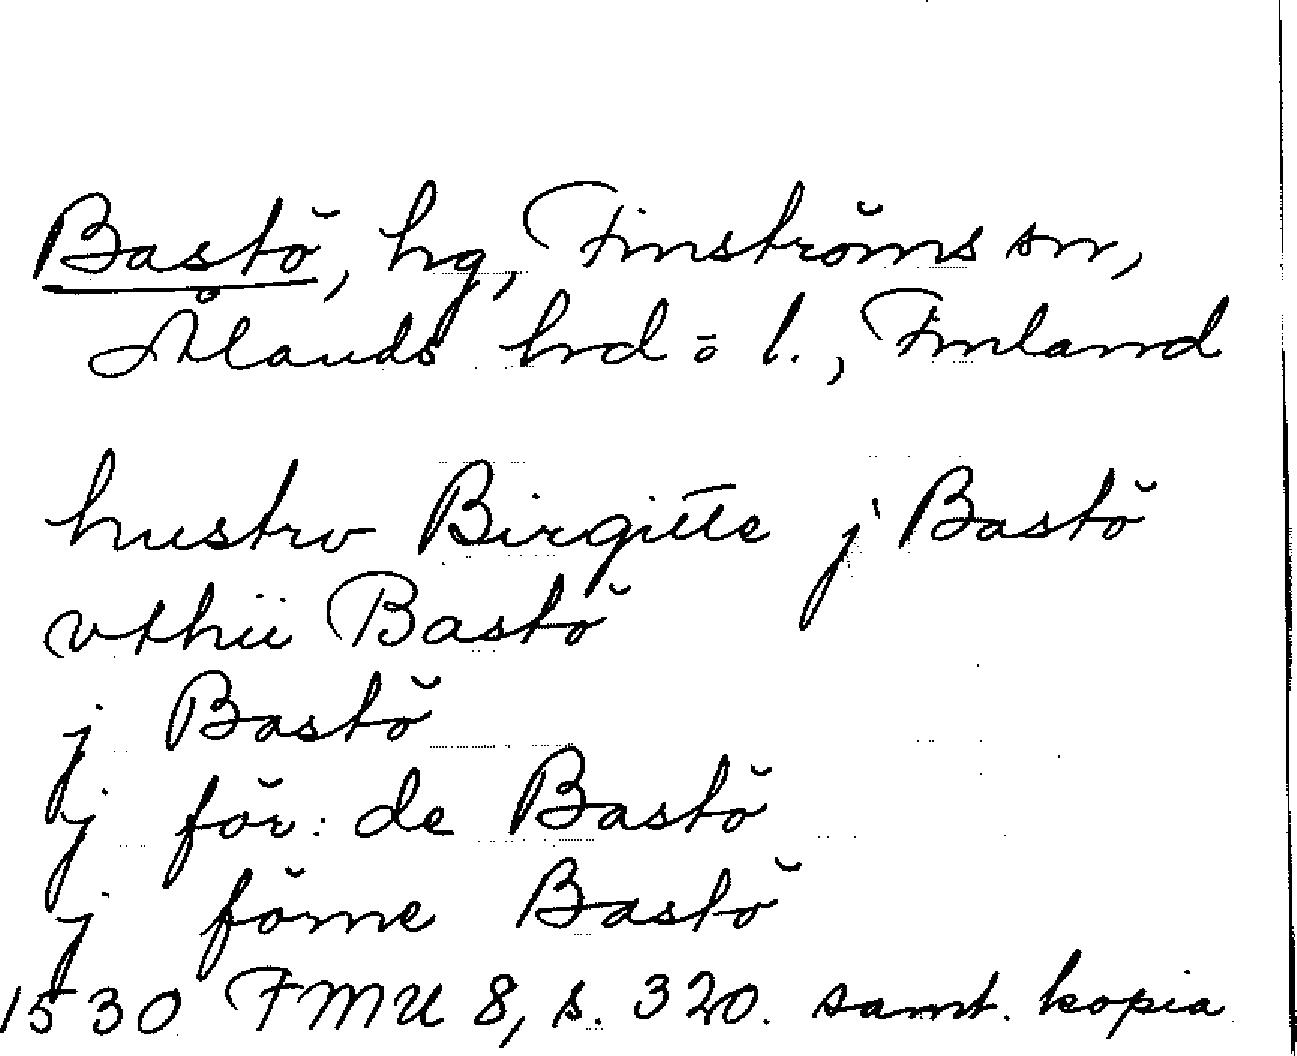 Bastö, hg, Finströms sn,
Ålands hrd o l., Finland
hustrv Birgitte j Bastö
vthii Bastö
j Bastö
j för: de Bastö
j förne Bastö
1530 FMU 8, s. 320. samt. kopia